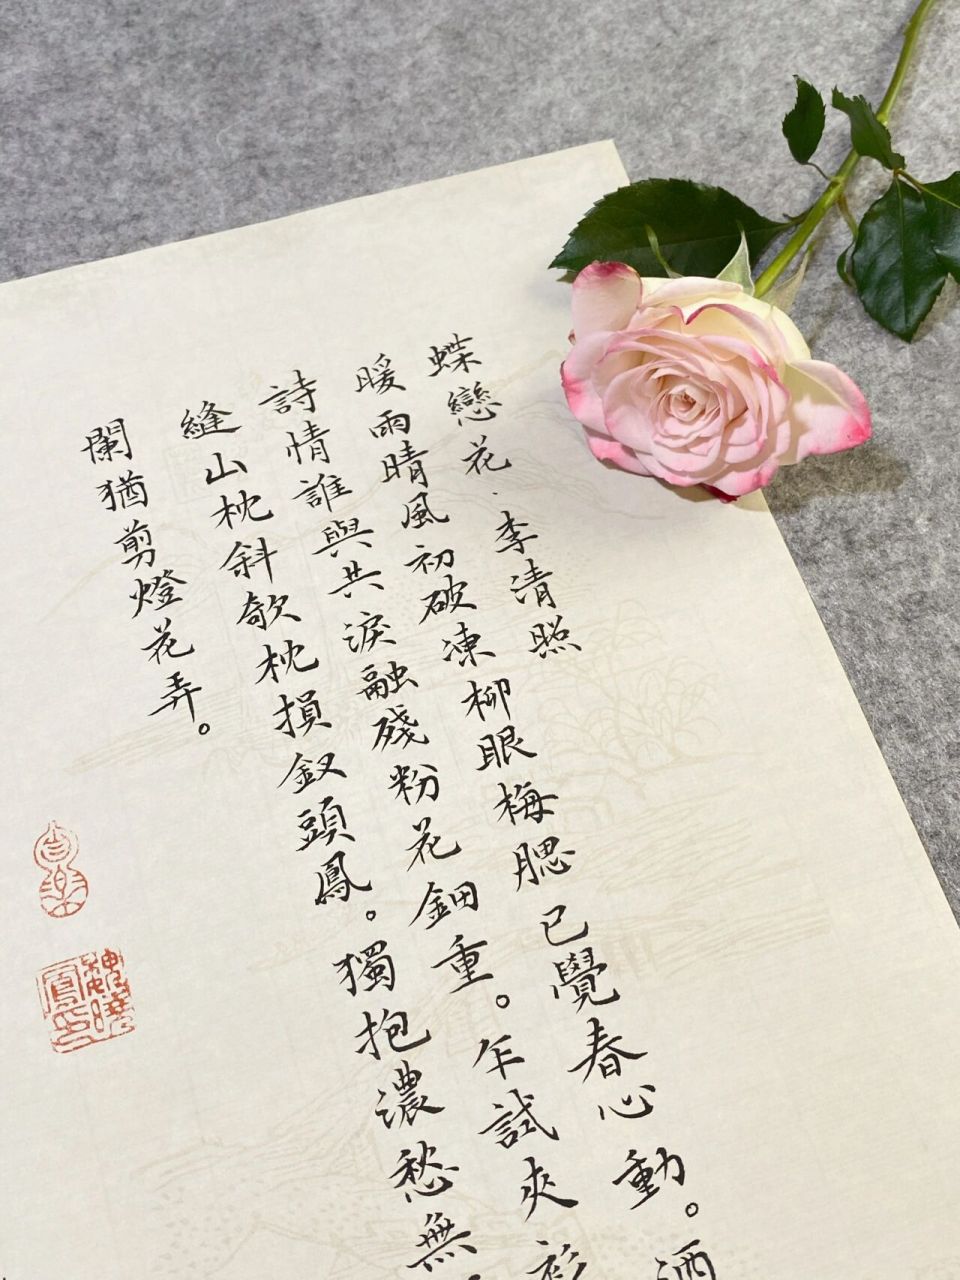 蝶戀花·李清照
暖雨晴風初破凍柳眼梅腮已覺春心動。酒
詩情誰與共淚融殘粉花鈿重。乍試夾衫
縫山枕斜欹枕損釵頭鳳。獨抱濃愁無
闌猶剪燈花弄。